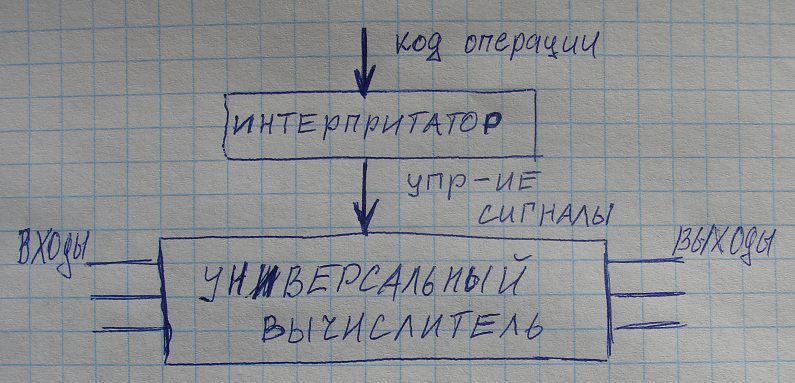 код операции
ИНТЕРПРИТАТОР
УПР-ИЕ
СИГНАЛЫ
ВХОДЫ
ВЫХОДЫ
УНИВЕРСАЛЬНЫЙ
ВЫЧИСЛИТЕЛЬ